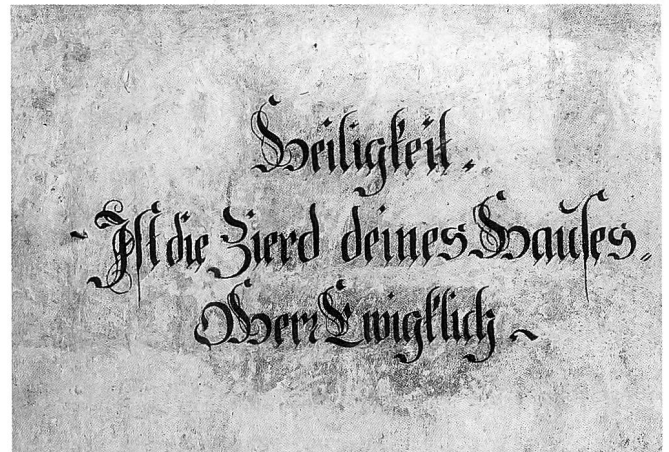 Heiligkeit.
Ist die Zierd deines Hauses.
O Herr Ewigklich